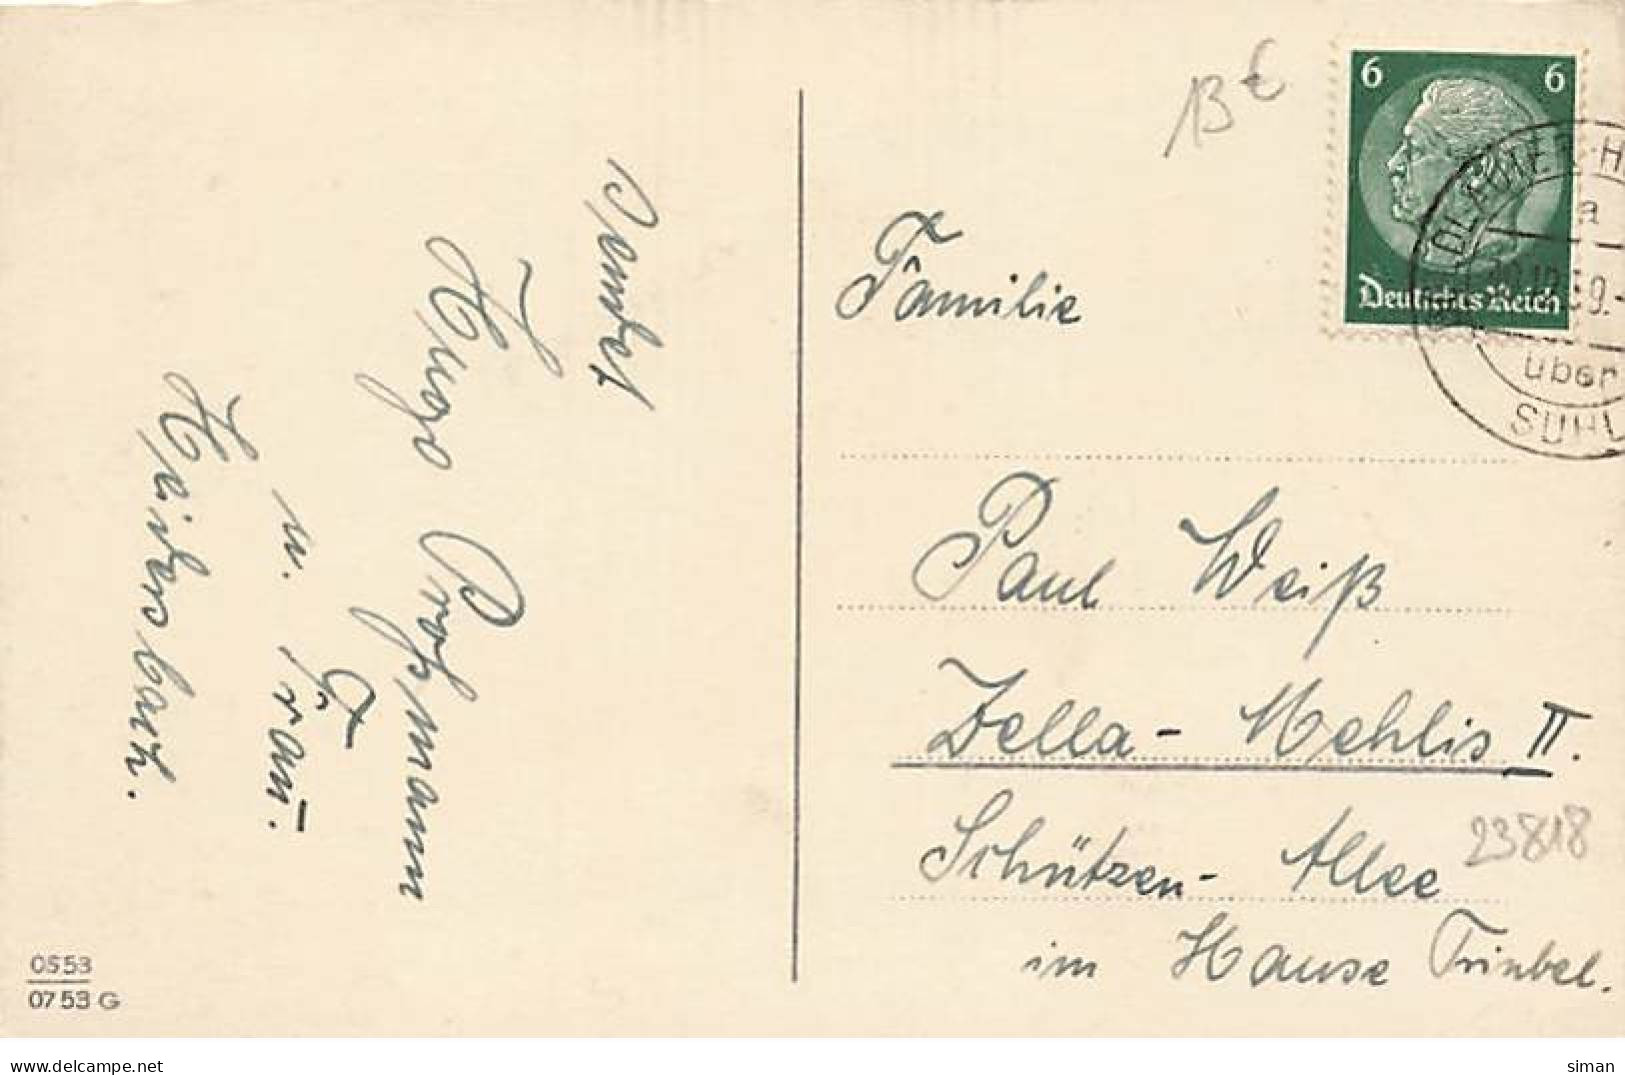 sendet
Hugo Proßmann
u. Frau.
Heidersbach.
0553
0753 G
13 €
6 6
Deutsches Reich
a
10.12.39.-
über
SUHL
Familie
Paul Weiß
Zella-Mehlis II.
Schützen-Allee
23818
im Hause Trinbel.
www.delcampe.net
siman